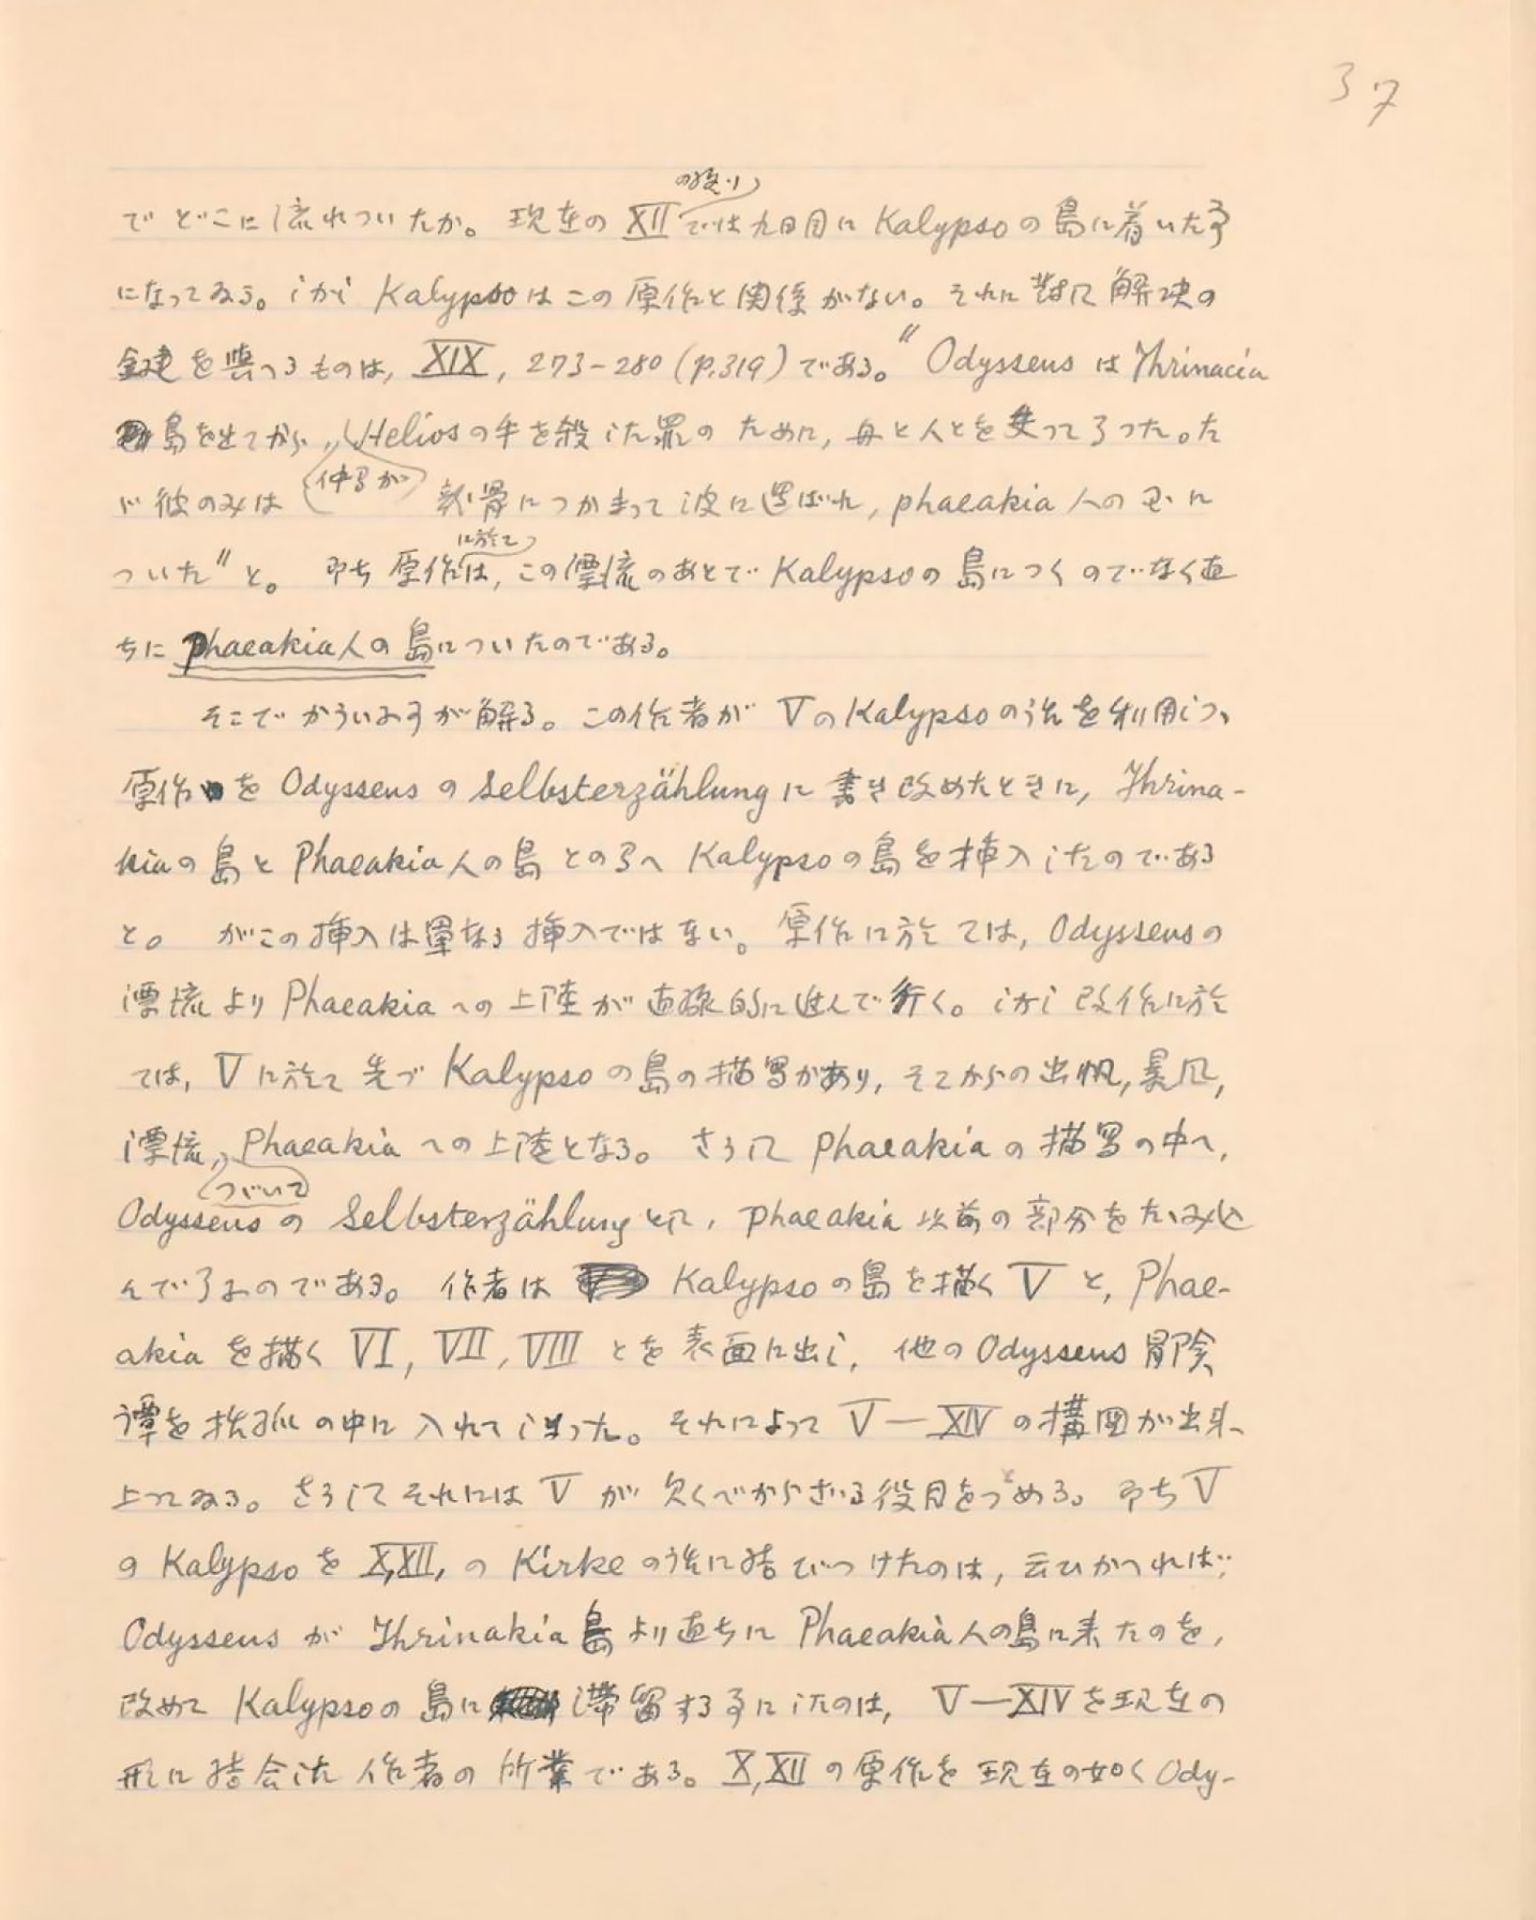 37
の終り
でどこに流れついたか。現在の XII では九日目に Kalypso の島に着いた事
になってゐる。しかし Kalypso はこの原作と関係がない。それに対して解決の
鍵を与へるものは, XIX, 273-280 (p.319) である。"Odysseus は Thrinacia
島を出てから, Helios の牛を殺した罪のために, 舟と人とを失って了った。た
仲間が
ゞ彼のみは 龍骨につかまって波に運ばれ, phaeakia 人の国に
に於て
ついた" と。 即ち原作は, この漂流のあとで Kalypso の島につくのでなく直
ちに Phaeakia人の島についたのである。
そこでかういふ事が解る。この作者が V の Kalypso の話を利用しつゝ
原作を Odysseus の Selbsterzählung に書き改めたときに, Thrina-
kia の島と Phaeakia 人の島との間へ Kalypso の島を挿入したのである
と。 がこの挿入は単なる挿入ではない。原作に於ては, Odysseus の
漂流より Phaeakia への上陸が直線的に進んで行く。しかし改作に於
ては, V に於て先づ Kalypso の島の描写があり, そこからの出帆, 暴風,
漂流, Phaeakia への上陸となる。さうして Phaeakia の描写の中へ,
つゞいて
Odysseus の Selbsterzählung として, phaeakia 以前の部分をたゝみ込
んで了ふのである。作者は Kalypso の島を描く V と, Phae-
akia を描く VI, VII, VIII とを表面に出し, 他の Odysseus 冒険
譚を括弧の中に入れてしまった。それによって V — XIV の構図が出来
上ってゐる。さうしてそれには V が欠くべからざる役目をつとめる。即ち V
の Kalypso を X, XII, の Kirke の話に結びつけたのは, 云ひかへれば,
Odysseus が Thrinakia 島より直ちに Phaeakia 人の島に来たのを,
改めて Kalypso の島に滞留する事にしたのは, V — XIV を現在の
形に結合した作者の所業である。X, XII の原作を現在の如く Ody-